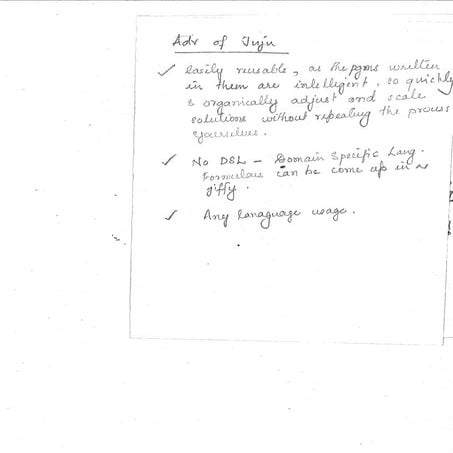 Adv of Juju
✓ Easily reusable, as the pgms written
in them are intelligent. so quickly
& organically adjust and scale
solutions without repeating the process
yourselves.
✓ No DSL - Domain Specific Lang.
Formulas can be come up in a
jiffy.
✓ Any lanaguage usage.